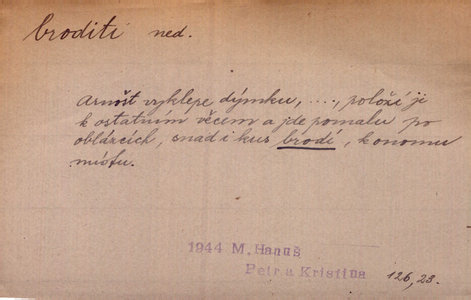 broditi ned.
Arnošt vyklepe dýmku, ...., položí ji
k ostatním věcem a jde pomalu po
oblázcích, snad i kus brodí, k onomu
místu.
1944 M. Hanuš
Petr a Kristina 126, 23.